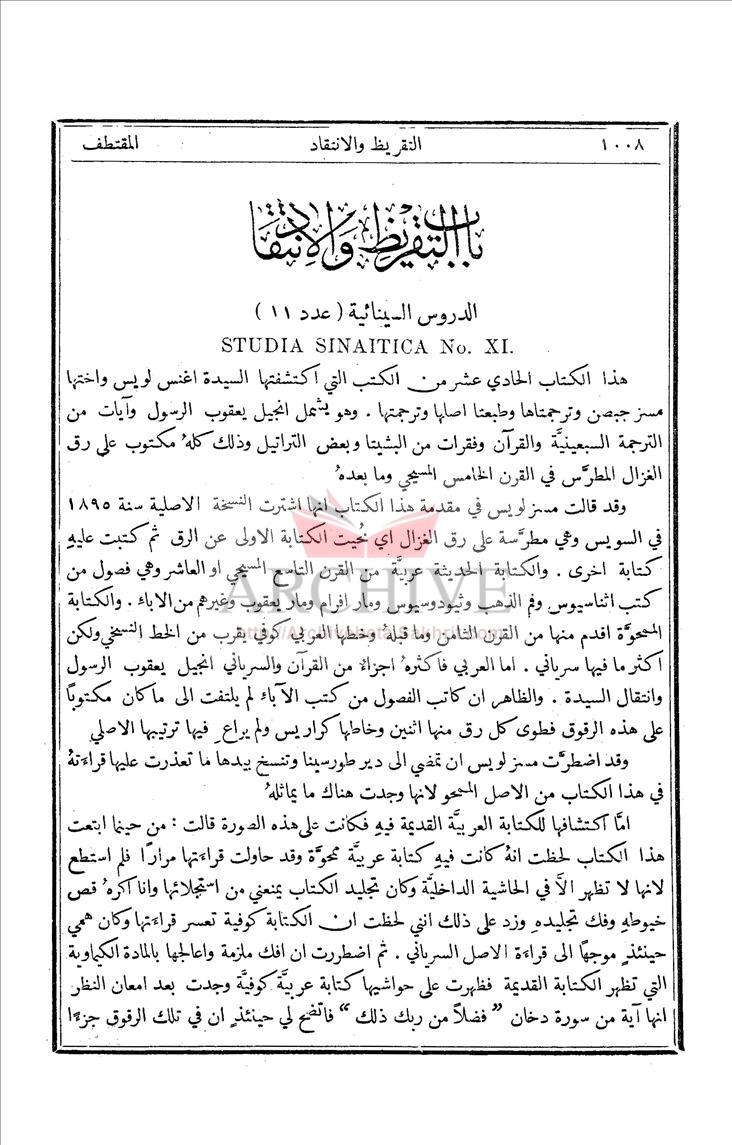 ١٠٠٨ التقريظ والانتقاد المقتطف
باب التقريظ والانتقاد
الدروس السينائية (عدد ١١)
STUDIA SINAITICA No. XI.
هذا الكتاب الحادي عشر من الكتب التي اكتشفتها السيدة اغنس لويس واختها
مسز جبصن وترجمتاها وطبعتا اصلها وترجمتها . وهو يشمل انجيل يعقوب الرسول وآيات من
الترجمة السبعينيَّة والقرآن وفقرات من البشيتا وبعض التراتيل وذلك كلهُ مكتوب على رق
الغزال المطرَّس في القرن الخامس المسيحي وما بعدهُ
وقد قالت مسز لويس في مقدمة هذا الكتاب انها اشترت النسخة الاصلية سنة ١٨٩٥
في السويس وهي مطرَّسة على رق الغزال اي مُحيت الكتابة الاولى عن الرق ثم كتبت عليهِ
كتابة اخرى . والكتابة الحديثة عربيَّة من القرن التاسع المسيحي او العاشر وهي فصول من
كتب اثناسيوس وفم الذهب وثيودوسيوس ومار افرام ومار يعقوب وغيرهم من الاباء . والكتابة
الممحوَّة اقدم منها من القرن الثامن وما قبلهُ وخطها العربي كوفي يقرب من الخط النسخي ولكن
اكثر ما فيها سرياني . اما العربي فاكثرهُ اجزاءٌ من القرآن والسرياني انجيل يعقوب الرسول
وانتقال السيدة . والظاهر ان كاتب الفصول من كتب الآباء لم يلتفت الى ما كان مكتوبًا
على هذه الرقوق فطوى كل رق منها اثنين وخاطها كراريس ولم يراعِ فيها ترتيبها الاصلي
وقد اضطرَّت مسز لويس ان تمضي الى دير طورسينا وتنسخ بيدها ما تعذرت عليها قراءتهُ
في هذا الكتاب من الاصل الممحو لانها وجدت هناك ما يماثلهُ
امَّا اكتشافها للكتابة العربيَّة القديمة فيهِ فكانت على هذه الصورة قالت : من حينما ابتعت
هذا الكتاب لحظت انهُ كانت فيهِ كتابة عربيَّة ممحوَّة وقد حاولت قراءتها مرارًا فلم استطع
لانها لا تظهر الاَّ في الحاشية الداخليَّة وكان تجليد الكتاب يمنعني من استجلائها وانا اكرهُ قص
خيوطهِ وفك تجليدهِ وزد على ذلك انني لحظت ان الكتابة كوفية تعسر قراءتها وكان همي
حينئذٍ موجهًا الى قراءة الاصل السرياني . ثم اضطررت ان افك ملزمة واعالجها بالمادة الكياوية
التي تظهر الكتابة القديمة فظهرت على حواشيها كتابة عربيَّة كوفيَّة وجدت بعد امعان النظر
انها آية من سورة دخان " فضلاً من ربك ذلك " فاتضح لي حينئذٍ ان في تلك الرقوق جزءًا
ARCHIVE